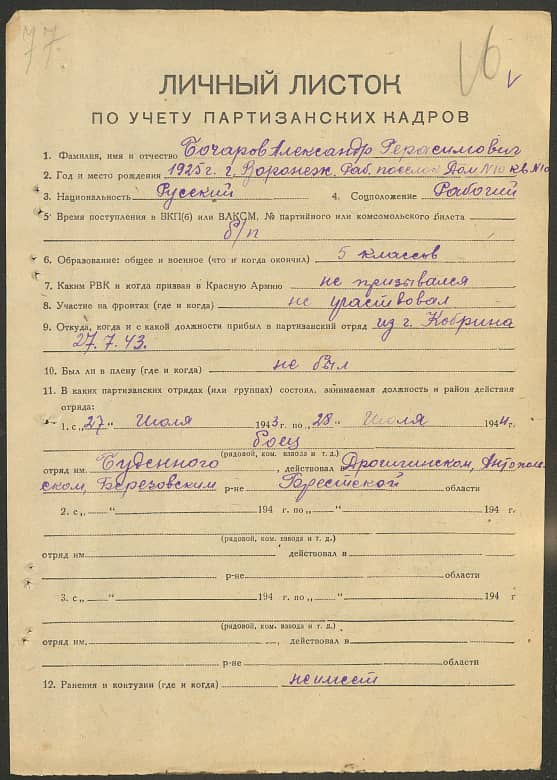 77.
ЛИЧНЫЙ ЛИСТОК
ПО УЧЕТУ ПАРТИЗАНСКИХ КАДРОВ
1. Фамилия, имя и отчество Бочаров Александр Герасимович
2. Год и место рождения 1925 г. г. Воронеж. Раб. поселок Дом N10 кв. N10
3. Национальность Русский 4. Соцположение Рабочий
5. Время поступления в ВКП(б) или ВЛКСМ, № партийного или комсомольского билета
б/п
6. Образование: общее и военное (что и когда окончил) 5 классов
7. Каким РВК и когда призван в Красную Армию не призывался
8. Участие на фронтах (где и когда) не участвовал
9. Откуда, когда и с какой должности прибыл в партизанский отряд из г. Кобрина
27.7.43.
10. Был ли в плену (где и когда) не был
11. В каких партизанских отрядах (или группах) состоял, занимаемая должность и район действия
отряда:
1. с „27“ Июля 1943 г. по „28“ Июля 1944 г.
боец
(рядовой, ком. взвода и т. д.)
отряд им. Буденного, действовал Дрогичинском, Антополь-
ском, Березовским р-не Брестской области
2. с „ “ 194 г. по „ “ 194 г.
(рядовой, ком. взвода и т. д.)
отряд им. действовал в
р-не области
3. с „ “ 194 г. по „ “ 194 г
(рядовой, ком. взвода и т. д.)
отряд им. , действовал в
р-не области
12. Ранения и контузии (где и когда) не имеет